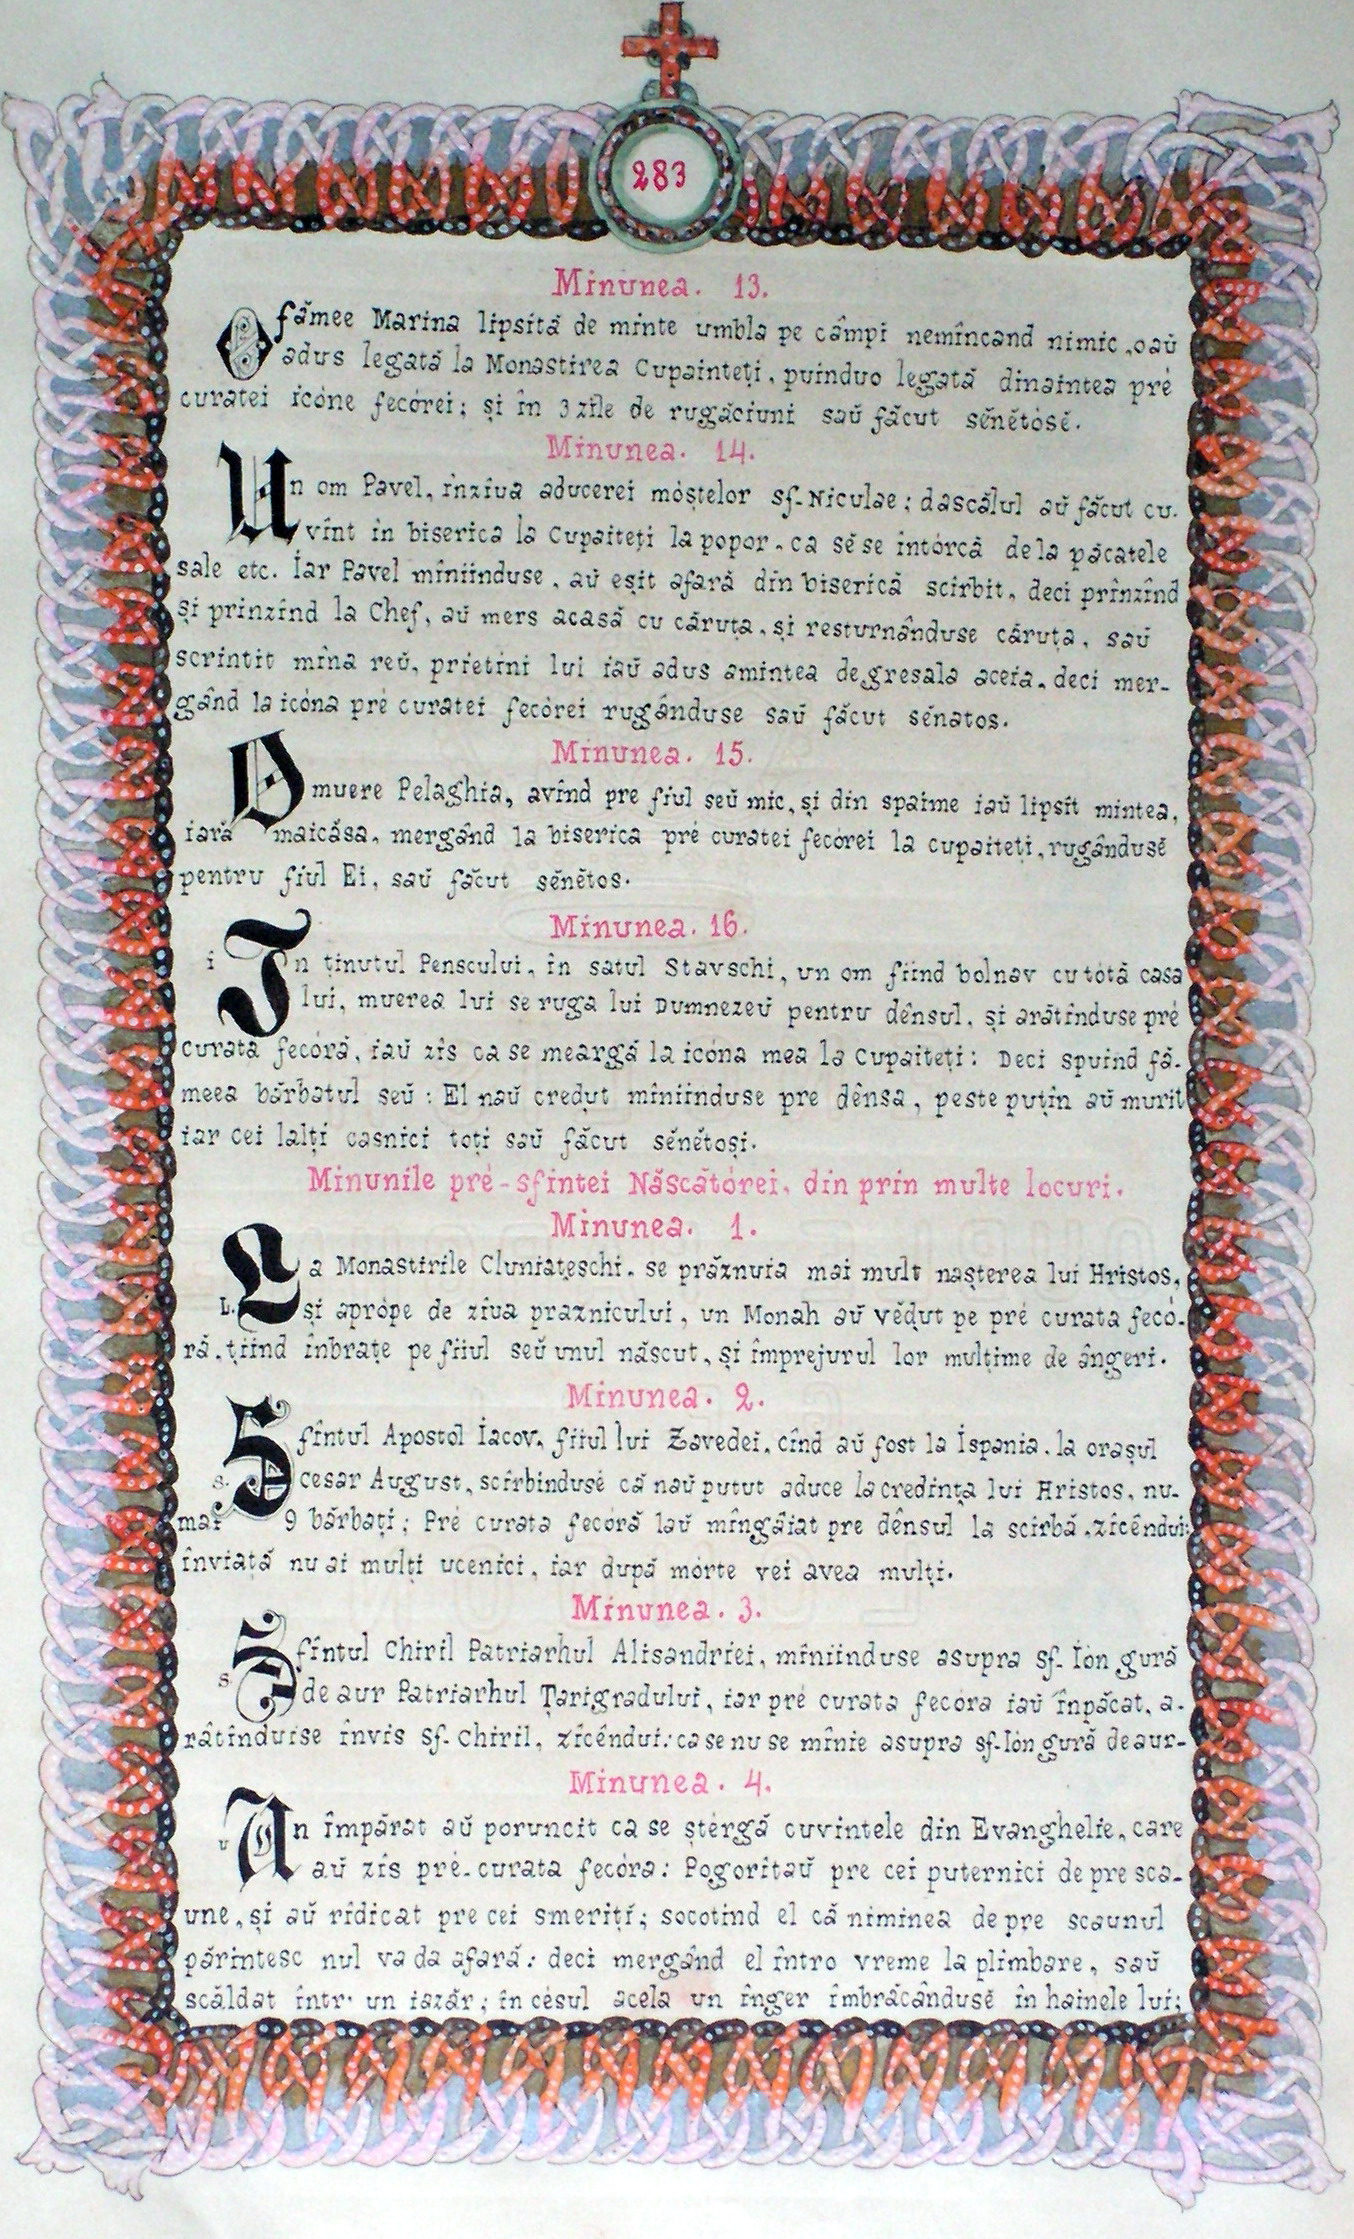 283
Minunea. 13.
O fămee Marina lipsită de minte umbla pe câmpi nemîncand nimic, oaŭ
adus legată la Monastirea Cupainteți, puinduo legată dinaintea pré
curatei icóne fecórei; și în 3 zile de rugăciuni saŭ făcut sĕnĕtósĕ.
Minunea. 14.
Un om Pavel, înziua aducerei móștelor sf. Niculae; dascălul aŭ făcut cu-
vînt in biserica la Cupaiteți la popor, ca sĕ se intórcă dela păcatele
sale etc. Iar Pavel mîniinduse, aŭ eșit afară din biserică scirbit, deci prînzînd
și prinzînd la Chef, aŭ mers acasă cu căruța, și resturnânduse căruța, saŭ
scrintit mîna reŭ, prietini lui iaŭ adus amintea degresala aceia, deci mer-
gând la icóna pré curatei fecórei rugânduse saŭ făcut sénatos.
Minunea. 15.
O muere Pelaghia, avînd pre fiul seŭ mic, și din spaime iaŭ lipsit mintea,
iară maicăsa, mergând la biserica pré curatei fecórei la cupaiteti, rugândusĕ
pentru fiul Ei, saŭ făcut sĕnĕtos.
Minunea. 16.
i În ținutul Penscului, în satul Stavschi, un om fiind bolnav cu tótă casa
lui, muerea lui se ruga lui Dumnezeŭ pentru dênsul, și arătînduse pré
curata fecóră, iaŭ zis ca se meargă la icóna mea la Cupaiteți: Deci spuind fă-
meea bărbatul seŭ: El naŭ creḑut mîniinduse pre dênsa, peste puțin aŭ murit
iar cei lalți casnici toți saŭ făcut sĕnĕtoși.
Minunile pré-sfintei Născătórei, din prin multe locuri.
Minunea. 1.
L. La Monastirile Cluniațeschi, se prăznuia mai mult nașterea lui Hristos,
și aprópe de ziua praznicului, un Monah aŭ vĕḑut pe pré curata fecó-
ră, țiind înbrațe pe fiiul seŭ unul născut, și împrejurul lor mulțime de ângeri.
Minunea. 2.
s. Sfîntul Apostol Iacov, fiiul lui Zavedei, cînd aŭ fost la Ispania, la orașul
cesar August, scîrbindusé că naŭ putut aduce la credința lui Hristos, nu-
mai 9 bărbați; Pré curata fecóră laŭ mîngăiat pre dênsul la scirbă, zicêndui:
înviață nu ai mulți ucenici, iar după mórte vei avea mulți.
Minunea. 3.
s. Sfîntul Chiril Patriarhul Alisandriei, mîniinduse asupra sf. Ion gură
de aur Patriarhul Țarigradului, iar pré curata fecóra iaŭ înpăcat, a-
rătînduise învis sf. Chiril, zicêndui: ca se nu se mînie asupra sf. Ion gură de aur.
Minunea. 4.
u Un împărat aŭ poruncit ca se ștergă cuvintele din Evanghelie, care
aŭ zis pré-curata fecóra: Pogorîtaŭ pre cei puternici de pre sca-
une, și aŭ rîdicat pre cei smeriți; socotind el că niminea de pre scaunul
părintesc nul va da afară: deci mergând el întro vreme la plimbare, saŭ
scăldat într' un iazăr; în césul acela un înger îmbrăcândusĕ în hainele lui;